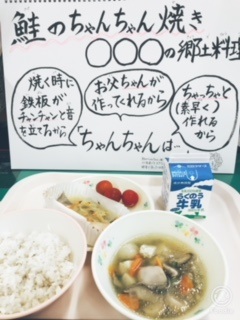 鮭のちゃんちゃん焼き
○○○の郷土料理
焼く時に
鉄板が
チャンチャンと音
を立てるから
お父ちゃんが
作ってくれるから
ちゃっちゃと
(素早く)
作れる
から
「ちゃんちゃんは…
らくのう
牛乳